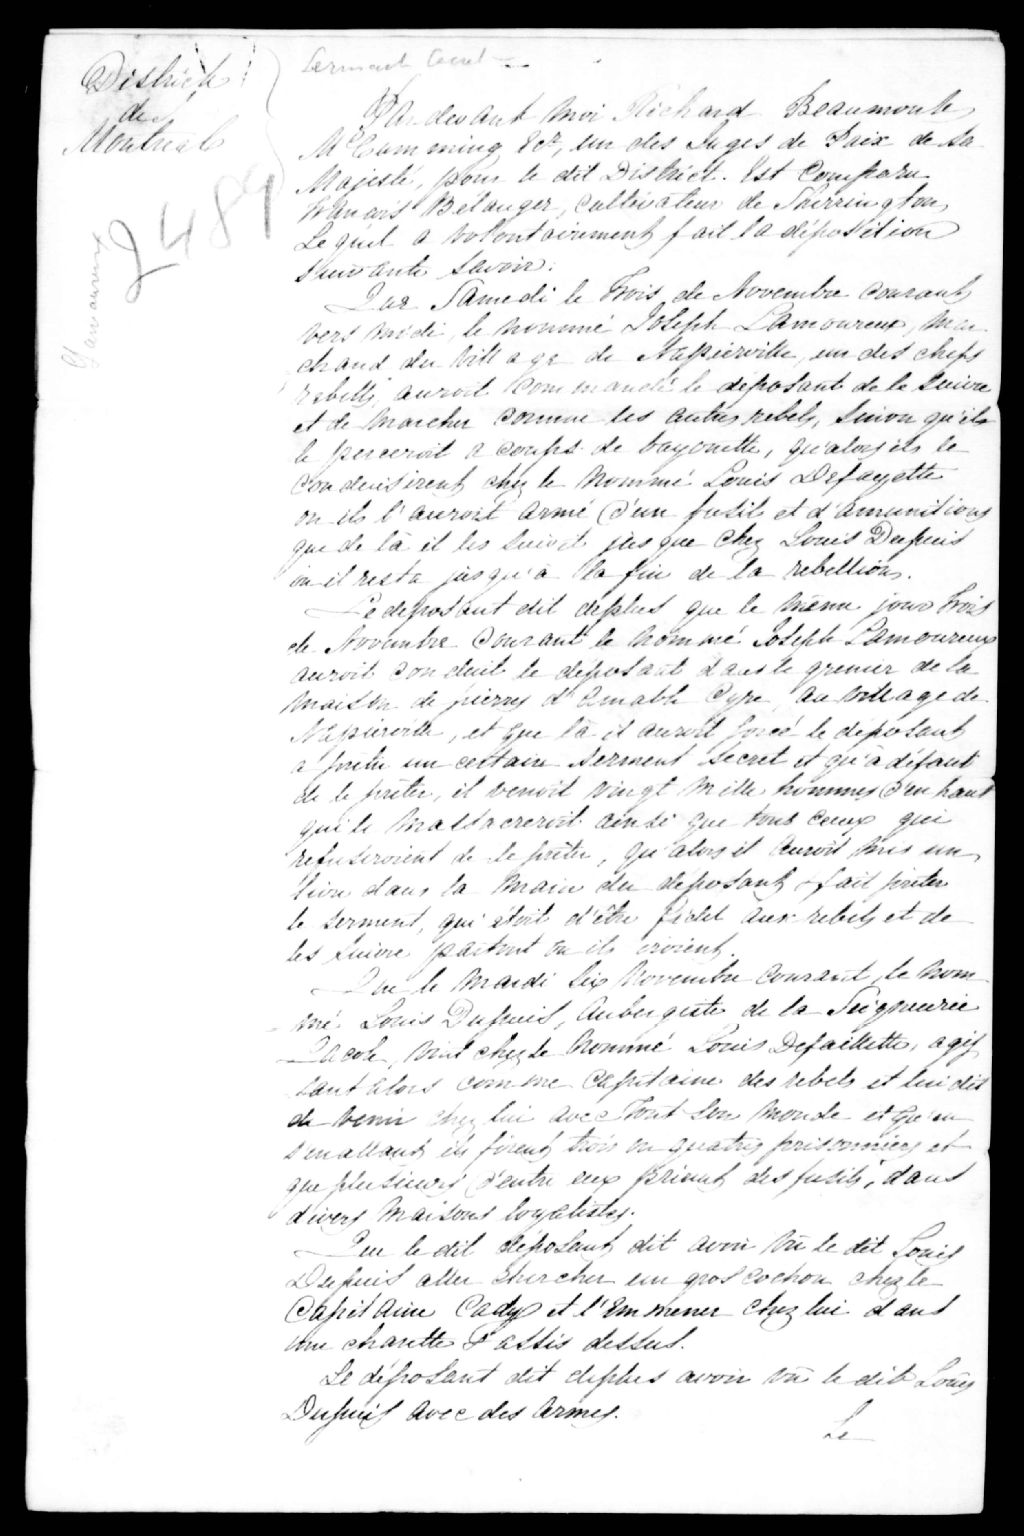 Serment Secret
District
de
Montreal
2489
Lamoureux
Pardevant moi Richard Beaumont
McCumming Ecr, un des Juges de Paix de Sa
Majesté, pour le dit District. Est Comparu
francois Bélanger, Cultivateur de Sherrington,
Lequel a volontairement fait la déposition
suivante savoir:
Que Samedi le trois de Novembre courant,
vers midi, le nommé Joseph Lamoureux, mar
chand du village de Napierville, un des chefs
rebells, auroit commandé le déposant de le suivre
et de marcher comme les autres rebels, sinon qu'ils
le perceroit a coups de bayonette, qu'alors ils le
conduisirent chez le nommé Louis Defayette
ou ils l'auroit armé d'un fusil et d'amunitions
que de là il les suivit jusque chez Louis Dupuis
ou il resta jusqu'à la fin de la rebellion.
Le deposant dit deplus que le même jour trois
de Novembre courant le nommé Joseph Lamoureux
auroit conduit le deposant dans le grenier de la
maison de pierres d'Amable Cyre, au village de
Napierville, et que là il auroit forcé le déposant
a prêter un certain serment secret et qu'à défaut
de le prêter, il venoit vingt mille hommes d'en haut
qui le massacreroit ainsi que tous ceux qui
refuseroient de le prêter, qu'alors il auroit mis un
livre dans la main du déposant & fait prêter
le serment, qui étoit d'être fidel aux rebels et de
les suivre partout ou ils iroient.
Que le mardi six Novembre courant, le nom-
mé Louis Dupuis, Aubergiste de la Seigneurie
Lacole, vint chez le nommé Louis Defaillette, agis
sant alors comme Capitaine des rebels et lui dit
de venir chez lui avec tout son monde et qu'en
s'en allant ils firent trois ou quatres prisonniers et
que plusieurs d'entre eux prirent des fusils, dans
divers maisons loyalistes.
Que le dit déposant dit avoir vû le dit Louis
Dupuis aller chercher un gros cochon chez le
Capitaine Cady et l'emmener chez lui dans
une charette assis dessus.
Le déposant dit deplus avoir vû le dit Louis
Dupuis avec des armes.
Le